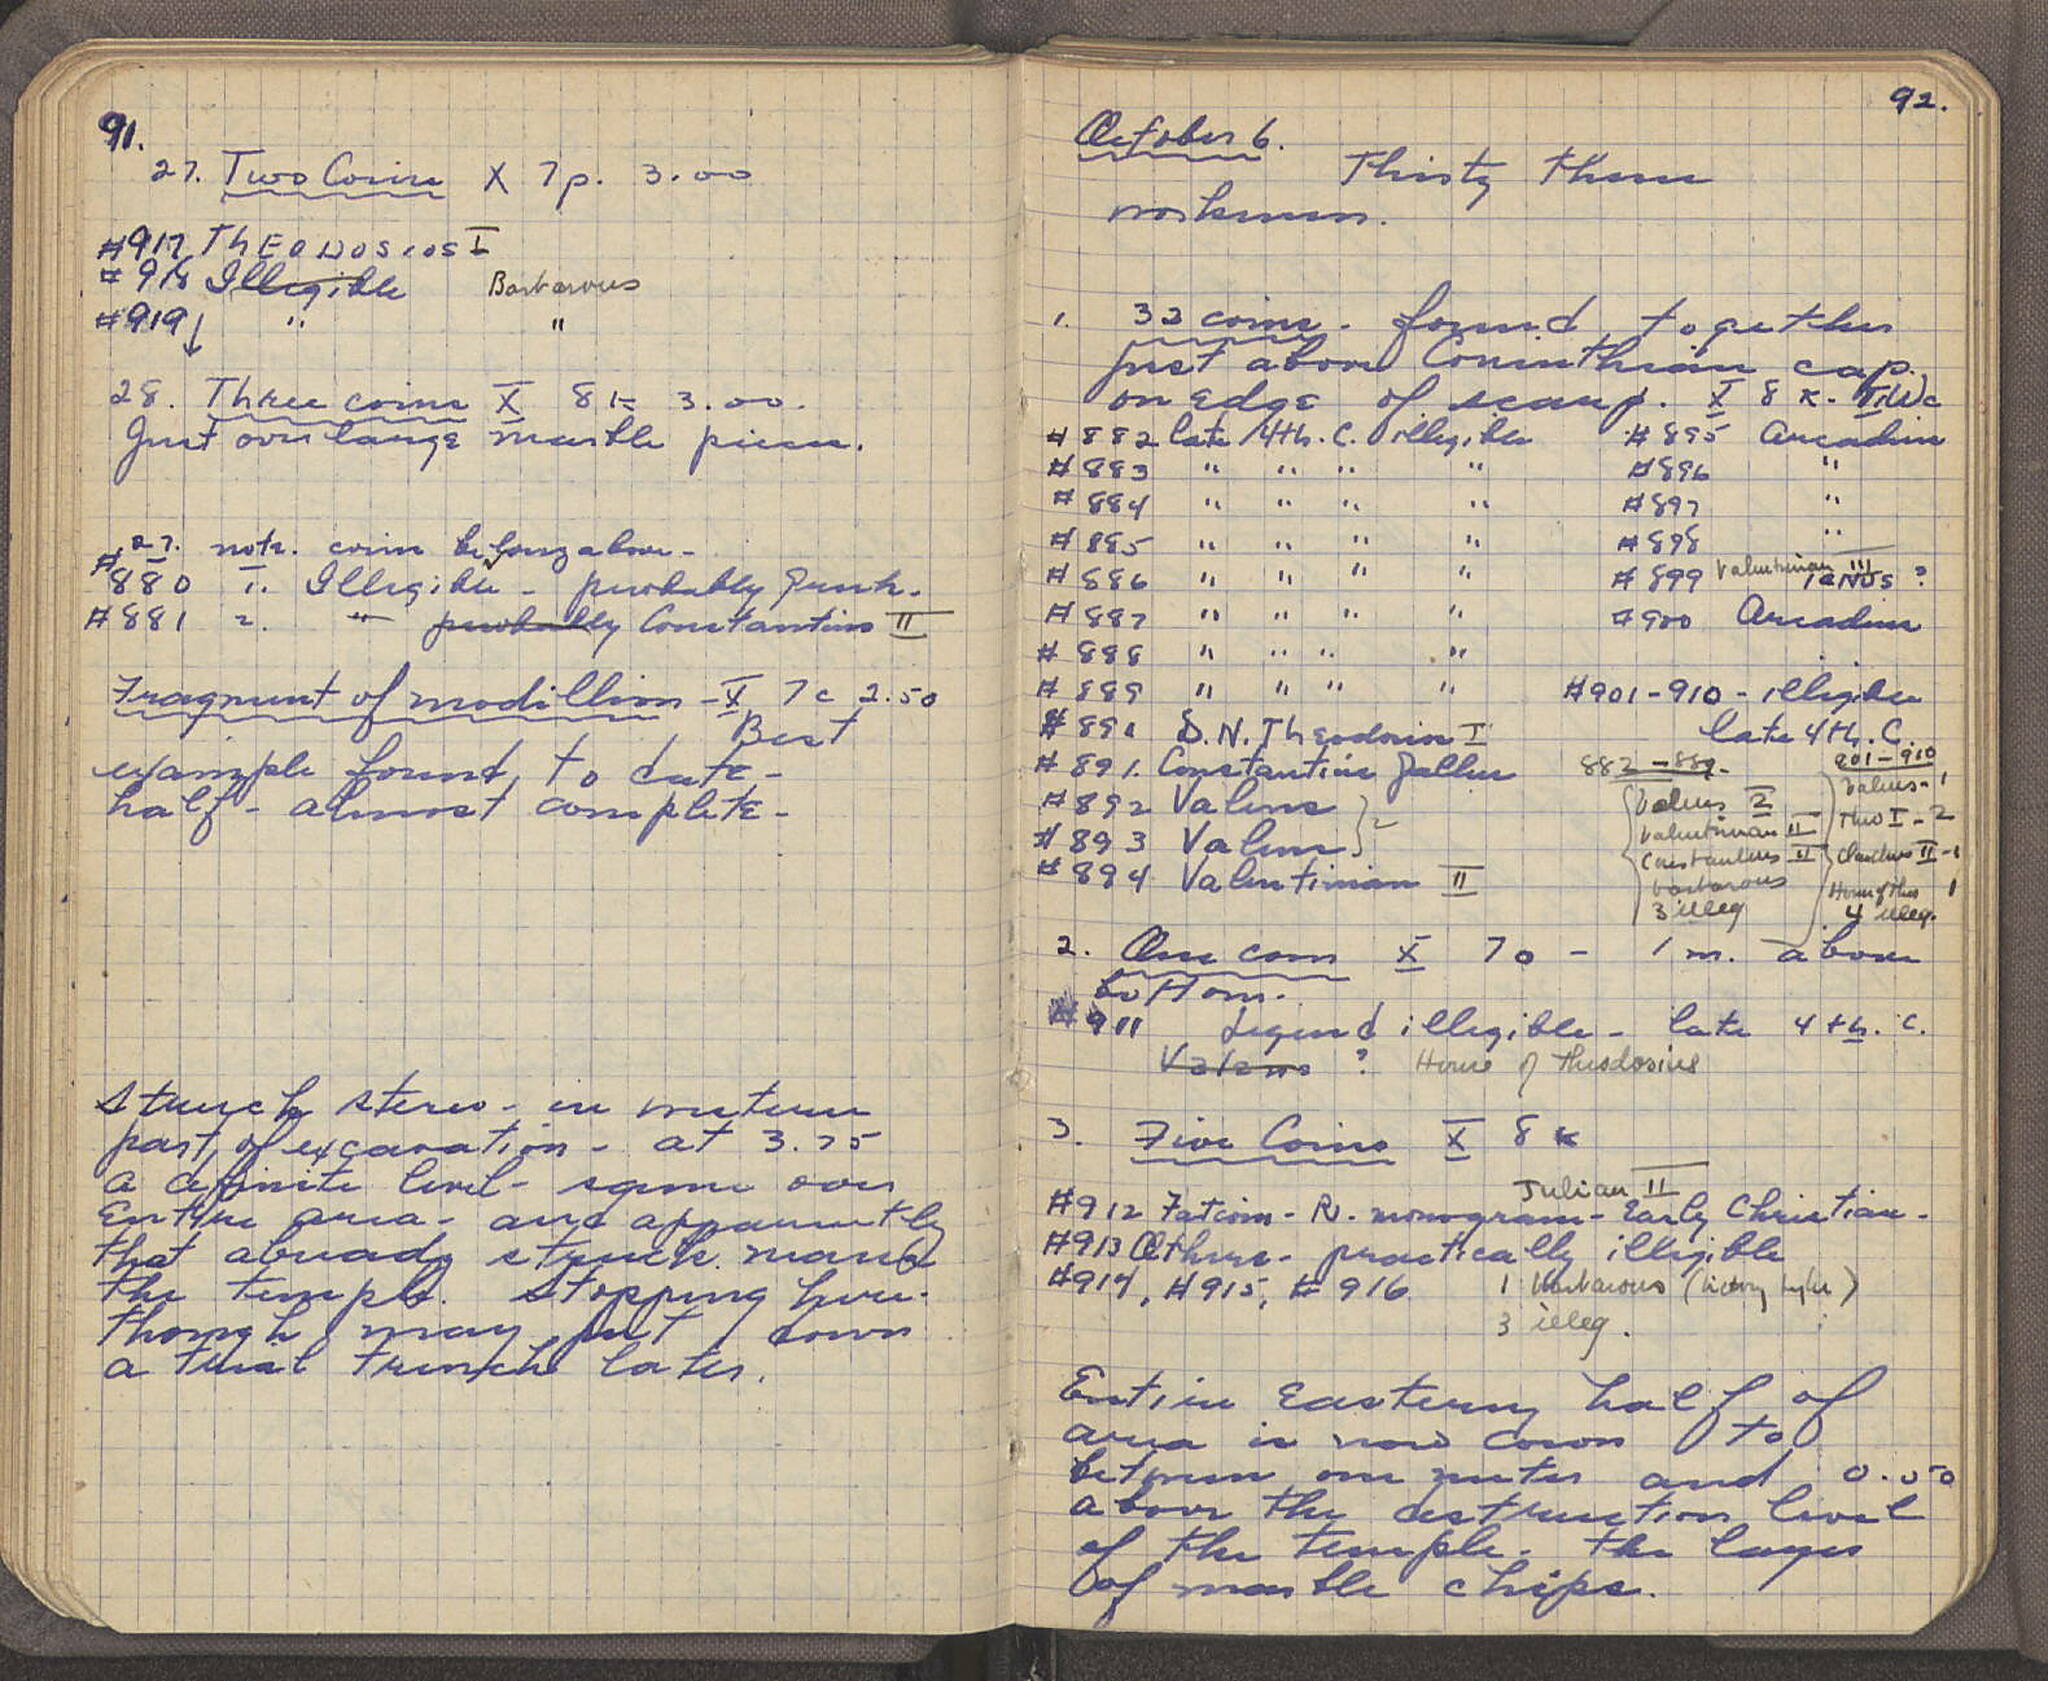 91.
27. Two Coins X 7p. 3.00
#917 THEODOSIOS I
#918 Illegible Barbarous
#919 ↓ " "
28. Three coins X 8 K 3.00.
Just over large marble piece.
27. note. coins belong above -
#880 1. Illegible - probably Greek.
#881 2. " probably Constantius II
Fragment of modillion - X 7c 2.50
Best
example found to date -
half - almost complete -
Struck stereo - in western
part of excavation - at 3.75
a definite level - same over
Entire area - and apparently
that already struck round
the temple. Stopping here -
though may put down
a trial trench later.
92.
October 6.
Thirty three
workmen.
1. 32 coins - found together
just above Corinthian cap.
on edge of scarp. X 8 K.
#882 late 4th. C. illegible #895 Arcadius
#883 " " " " #896 "
#884 " " " " #897 "
#885 " " " " #898 "
#886 " " " " #899 Valentinian III IANUS ?
#887 " " " " #900 Arcadius
#888 " " " "
#889 " " " " #901-910 - illegible
#890 D.N. Theodosius I late 4th. C.
#891. Constantius Gallus 882-889- 901-910
#892 Valens Valens 2 Valens - 1
#893 Valens } 2 Valentinian II Theo I - 2
#894 Valentinian II Constantius II Claudius II - 1
barbarous House of Theo 1
3 illeg 4 illeg.
2. One coin X 7o - 1 m. above
bottom.
#911 Legend illegible - late 4th. C.
Valens ? House of Theodosius
3. Five Coins X 8 K
Julian II
#912 Fat coin - R. monogram - Early Christian -
#913 Others - practically illegible
#914, #915, #916 1 barbarous (Victory type)
3 illeg.
Entire Eastern half of
area is now down to
between one meter and 0.50
above the destruction level
of the temple - the layer
of marble chips.